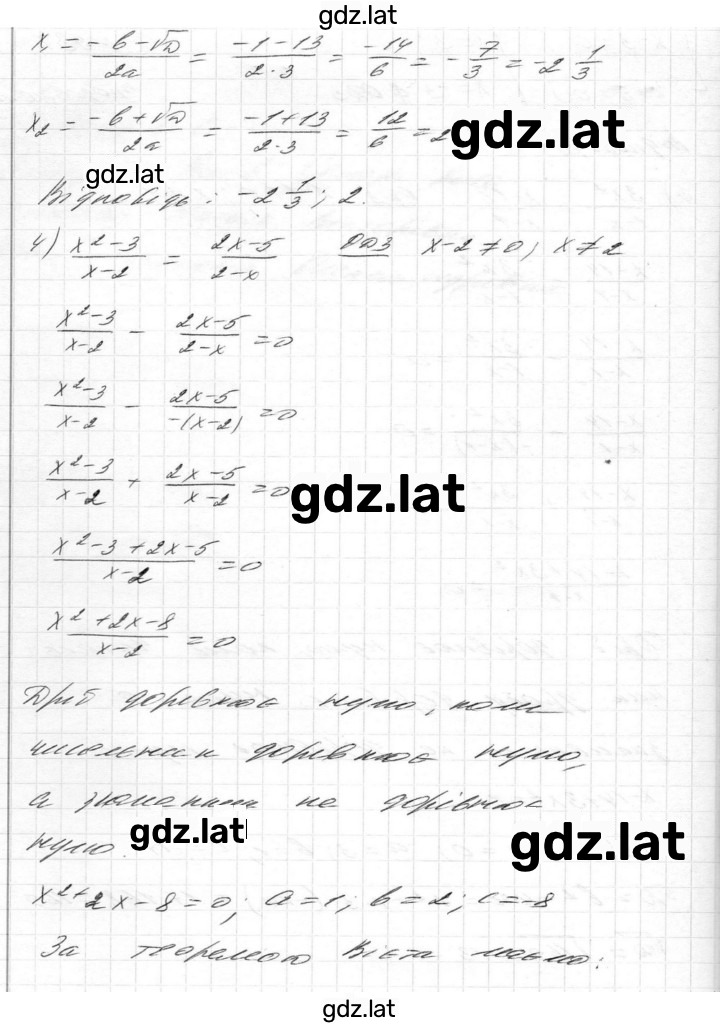 gdz.lat
x₁ = (-b-√D)/2a = (-1-13)/(2·3) = -14/6 = -7/3 = -2 1/3
x₂ = (-b+√D)/2a = (-1+13)/(2·3) = 12/6 = 2
gdz.lat
gdz.lat
Відповідь: -2 1/3; 2.
4) (x²-3)/(x-2) = (2x-5)/(2-x) ОДЗ x-2≠0; x≠2
(x²-3)/(x-2) - (2x-5)/(2-x) = 0
(x²-3)/(x-2) - (2x-5)/(-(x-2)) = 0
(x²-3)/(x-2) + (2x-5)/(x-2) = 0
gdz.lat
(x²-3+2x-5)/(x-2) = 0
(x²+2x-8)/(x-2) = 0
Дріб дорівнює нулю, коли
чисельник дорівнює нулю,
а знаменник не дорівнює
нулю.
gdz.lat
gdz.lat
x²+2x-8=0; a=1; b=2; c=-8
За теоремою Вієта маємо:
gdz.lat